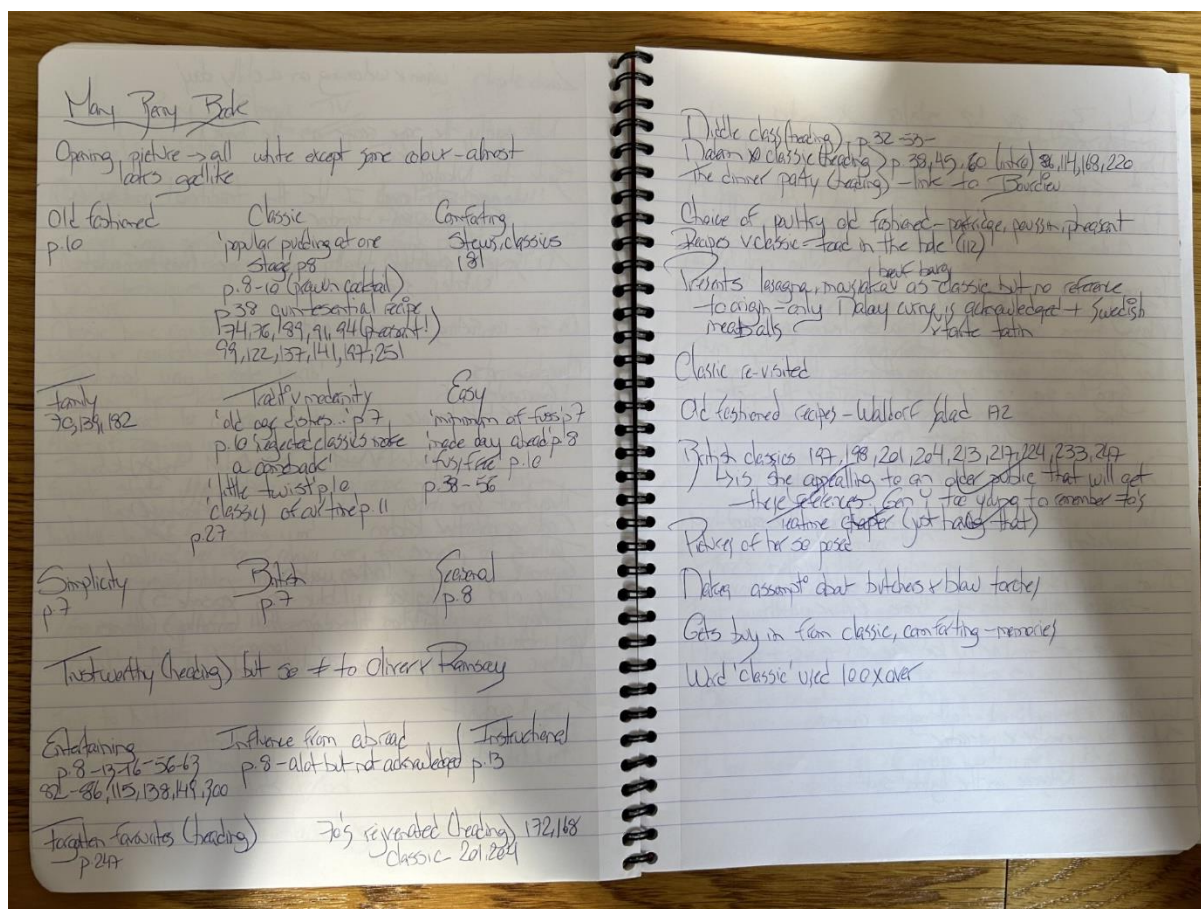 Mary Berry Book
Opening picture → all white except some colour - almost
looks godlike
Old fashioned
p.10
Classic
'popular pudding at one
stage' p8
p.8-10 (prawn cocktail)
p38 quintessential recipe
74,76,189,91,94 (pheasant!)
99,122,137,141,197,251
Comforting
Stews, classics
181
Family
70,139,182
Trad° v modernity
'old age dishes..' p7
p.10 'neglected classics make
a comeback'
'little twist' p10
'classics of our time' p.11
p.27
Easy
'minimum of fuss' p7
'made day ahead' p.8
'fuss free' p.10
p.38-56
Simplicity
p.7
British
p.7
Seasonal
p.8
Trustworthy (heading) but so ≠ to Oliver & Ramsay
Entertaining
p.8-13-16-56-63
82-86,115,138,149,300
Influence from abroad
p.8 - alot but not acknowledged
Instructional
p.13
Forgotten favourites (heading)
p.247
70's rejuvenated (heading) 172,168
classic - 201,204
Middle class (heading), p.32-53-
Modern classic (heading) p.38,45,60 (intro) 86,114,168,220
The dinner party (heading) - link to Bourdieu
Choice of poultry old fashioned - partridge, poussin, pheasant
Recipes v classic - toad in the hole (112)
beouf bourg
Presents lasagna, moussaka as classic but no reference
to origin - only Malay curry is acknowledged + Swedish
meatballs
+ tarte tatin
Classic re-visited
Old fashioned recipes - Waldorf Salad 172
British classics 197,198,201,204,213,217,224,233,247
↳ is she appealing to an older public that will get
these references Gen Y too young to remember 70's
teatime chapter (just having that)
Pictures of her so posed
Makes assumpt° about butchers & blow torches
Gets buy in from classic, comforting - memories
Word 'classic' used 100x over